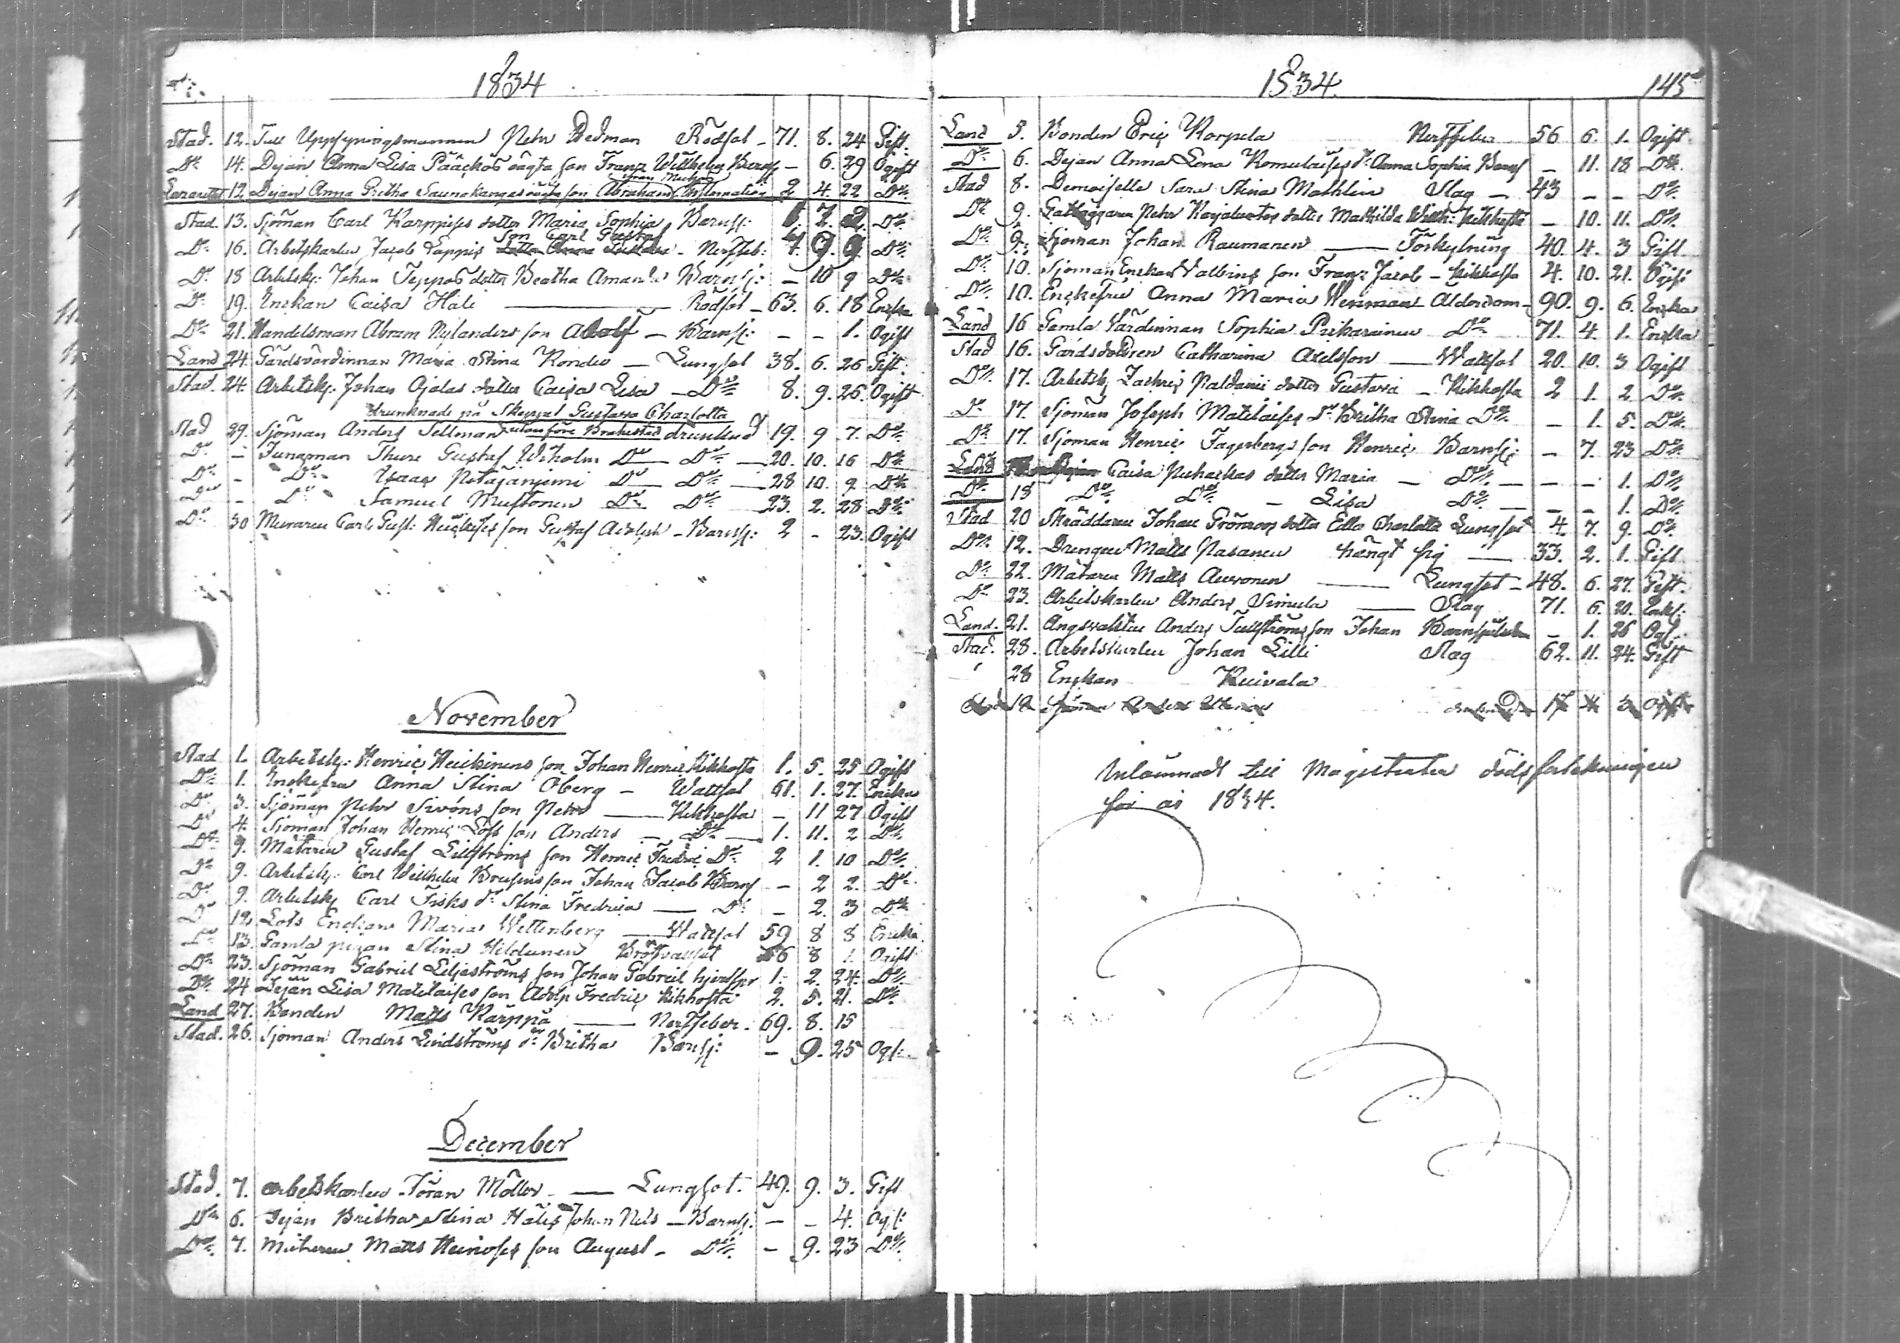 1834
Stad. 12. Tull Uppsyningsmannen Petr Hedman Rödsot - 71. 8. 24 Gift.
Do 14. Pejan Anna Lisa Pääckös oägta son Franz Willhelm Barnsj - 6. 29 Ogift
Lazarettet 12. Pejan Anna Greta Saunakangas oägta son Abraham Inflamation 2 4. 22 Do
Stad. 13. Sjöman Carl Karppises dotter Maria Sophia Barnsj: 1. 7. 2. Do
Son Carl Gustaf
Do 16. Arbetskarlen Jacob Lappis Nerffeb: 4. 9. 9. Do
Do 18 Arbetsk: Johan Teppos dotter Beatha Amanda Barnsj: - 10 9 Do
Do 19. Enckan Caisa Hali Rödsot - 63. 6. 18 Encka
Do 21. Handelsman Abram Nylanders son Adolf - Barnsj: - - 1. Ogift
Land 24. Gårdsvärdinnan Maria Stina Rondeo - Lungsot 38. 6. 26 Gift.
Stad. 24 Arbetsk: Johan Ojalas dotter Caisa Lisa - Do 8. 9. 26. Ogift
drunknade på Skeppet Gustava Charlotta
Stad 29. Sjöman Anders Sellman utanföre Brahestad drunknad 19. 9 7. Do
Do - Jungman Thure Gustaf Wikolm Do Do 20. 10. 16 Do
Do - Do Isaac Petäjäniemi Do Do 28 10. 9 Do
Do - Do Samuel Mustonen Do Do 23. 2. 28 Do
Do 30 Muraren Carl Gust: son Gustaf Adolph - Barnsj: 2 - 23. Ogift
November
Stad 1. Arbetsk: Henric Heickinens son Johan Henric Kikhosta 1. 5. 25 Ogift
Do 1. Enckefru Anna Stina Öberg - Wattsot 61. 1. 27. Encka
Do 3. Sjöman Petr Sivons son Petr Kikhosta - 11 27 Ogift
Do 4. Sjöman Johan Henric Löfs son Anders - Do 1. 11. 2 Do
Do 9. Mätaren Gustaf Lillströms son Henric Fredric Do 2 1. 10 Do
Do 9. Arbetsk: Carl Willhelm son Johan Jacob Barnsj - 2 2. Do
Do 9. Arbetsk Carl Fisks dr Stina Fredrica Do - 2. 3 Do
Do 12. Lots Enckan Maria Wettenberg Wattsot 59 8 8 Encka
Do 13. Gamla pigan Stina Hildunen 56 8 1. Ogift
Do 23. Sjöman Gabriel Liljeströms son Johan Gabriel 1. 2. 24. Do
Do 24 Pejan Lisa Matilaises son Adolf Fredric Kikhosta 2. 5. 21. Do
Land 27. Bonden Matts Karppa Nerffeber. 69. 8. 15
Stad. 26. Sjöman Anders Lindströms dr Britha Barnsj: - 9. 25 Ogf:
December
Stad. 7. Arbetskarlen Jöran Möller Lungsot. 49. 9. 3. Gift
Do 6. Pejan Britha Stina Halis Johan Nils - Barnsj: - - 4. Ogf:
Do 7. Matts son August - Do - 9. 23 Do
1834. 145
Land 5. Bonden Eric Korpela Nerffeber 56 6. 1. Ogift
Do 6. Pejan Anna Lena Romulaises dr Anna Sophia Barnsj - 11. 18 Do
Stad 8. Demoiselle Sara Stina Mathlin Slag - 43 - - Do
Do 9. Petr Karjaluotos dotter Mathilda Willh: Kikhosta - 10. 11. Do
Do 9. Sjöman Johan Raumanen Förkylning 40. 4. 3 Gift
Do 10. Sjöman Enckan Walbins son Franz Jacob - Kikhosta 4. 10. 21. Ogift
Do 10. Enckefru Anna Maria Wenman Ålderdom - 90. 9. 6. Encka
Land 16 Gamla Värdinnan Sophia Pikarainen Do 71. 4. 1. Encka
Stad 16. Catharina Axelsson Wattsot 20. 10. 3 Ogift
Do 17. Arbetsk Zachris Paldanii dotter Gustava - Kikhosta 2 1. 2 Do
Do 17. Sjöman Joseph Matilaises dr Britha Stina Do - 1. 5. Do
Do 17. Sjöman Henric Fagerbergs son Henric Barnsj: - 7. 23 Do
Land Caisa Pehackas dotter Maria - Do - - 1. Do
Do 18 Do Do - Lisa Do - - 1. Do
Stad 20 Skräddaren Johan Grönroos dotter Edla Charlotta Lungsot 4. 7. 9. Do
Do 12. Drengen Matts Pasanen hängt sig 33. 2. 1. Gift
Do 22. Mätaren Matts Auvonen Lungsot - 48. 6. 27. Gift.
Do 23. Arbetskarlen Anders Simula Slag 71. 6. 20.
Land. 21. Ångsvaktar Anders Tullströms son Johan Barnsjukdom - 1. 26 Ogf:
Stad. 28. Arbetskarlen Johan Lilli Slag 62. 11. 24. Gift
28 Enckan Kuivala
Inlämnadt till Magistraten dödsförtekningen
för år 1834.